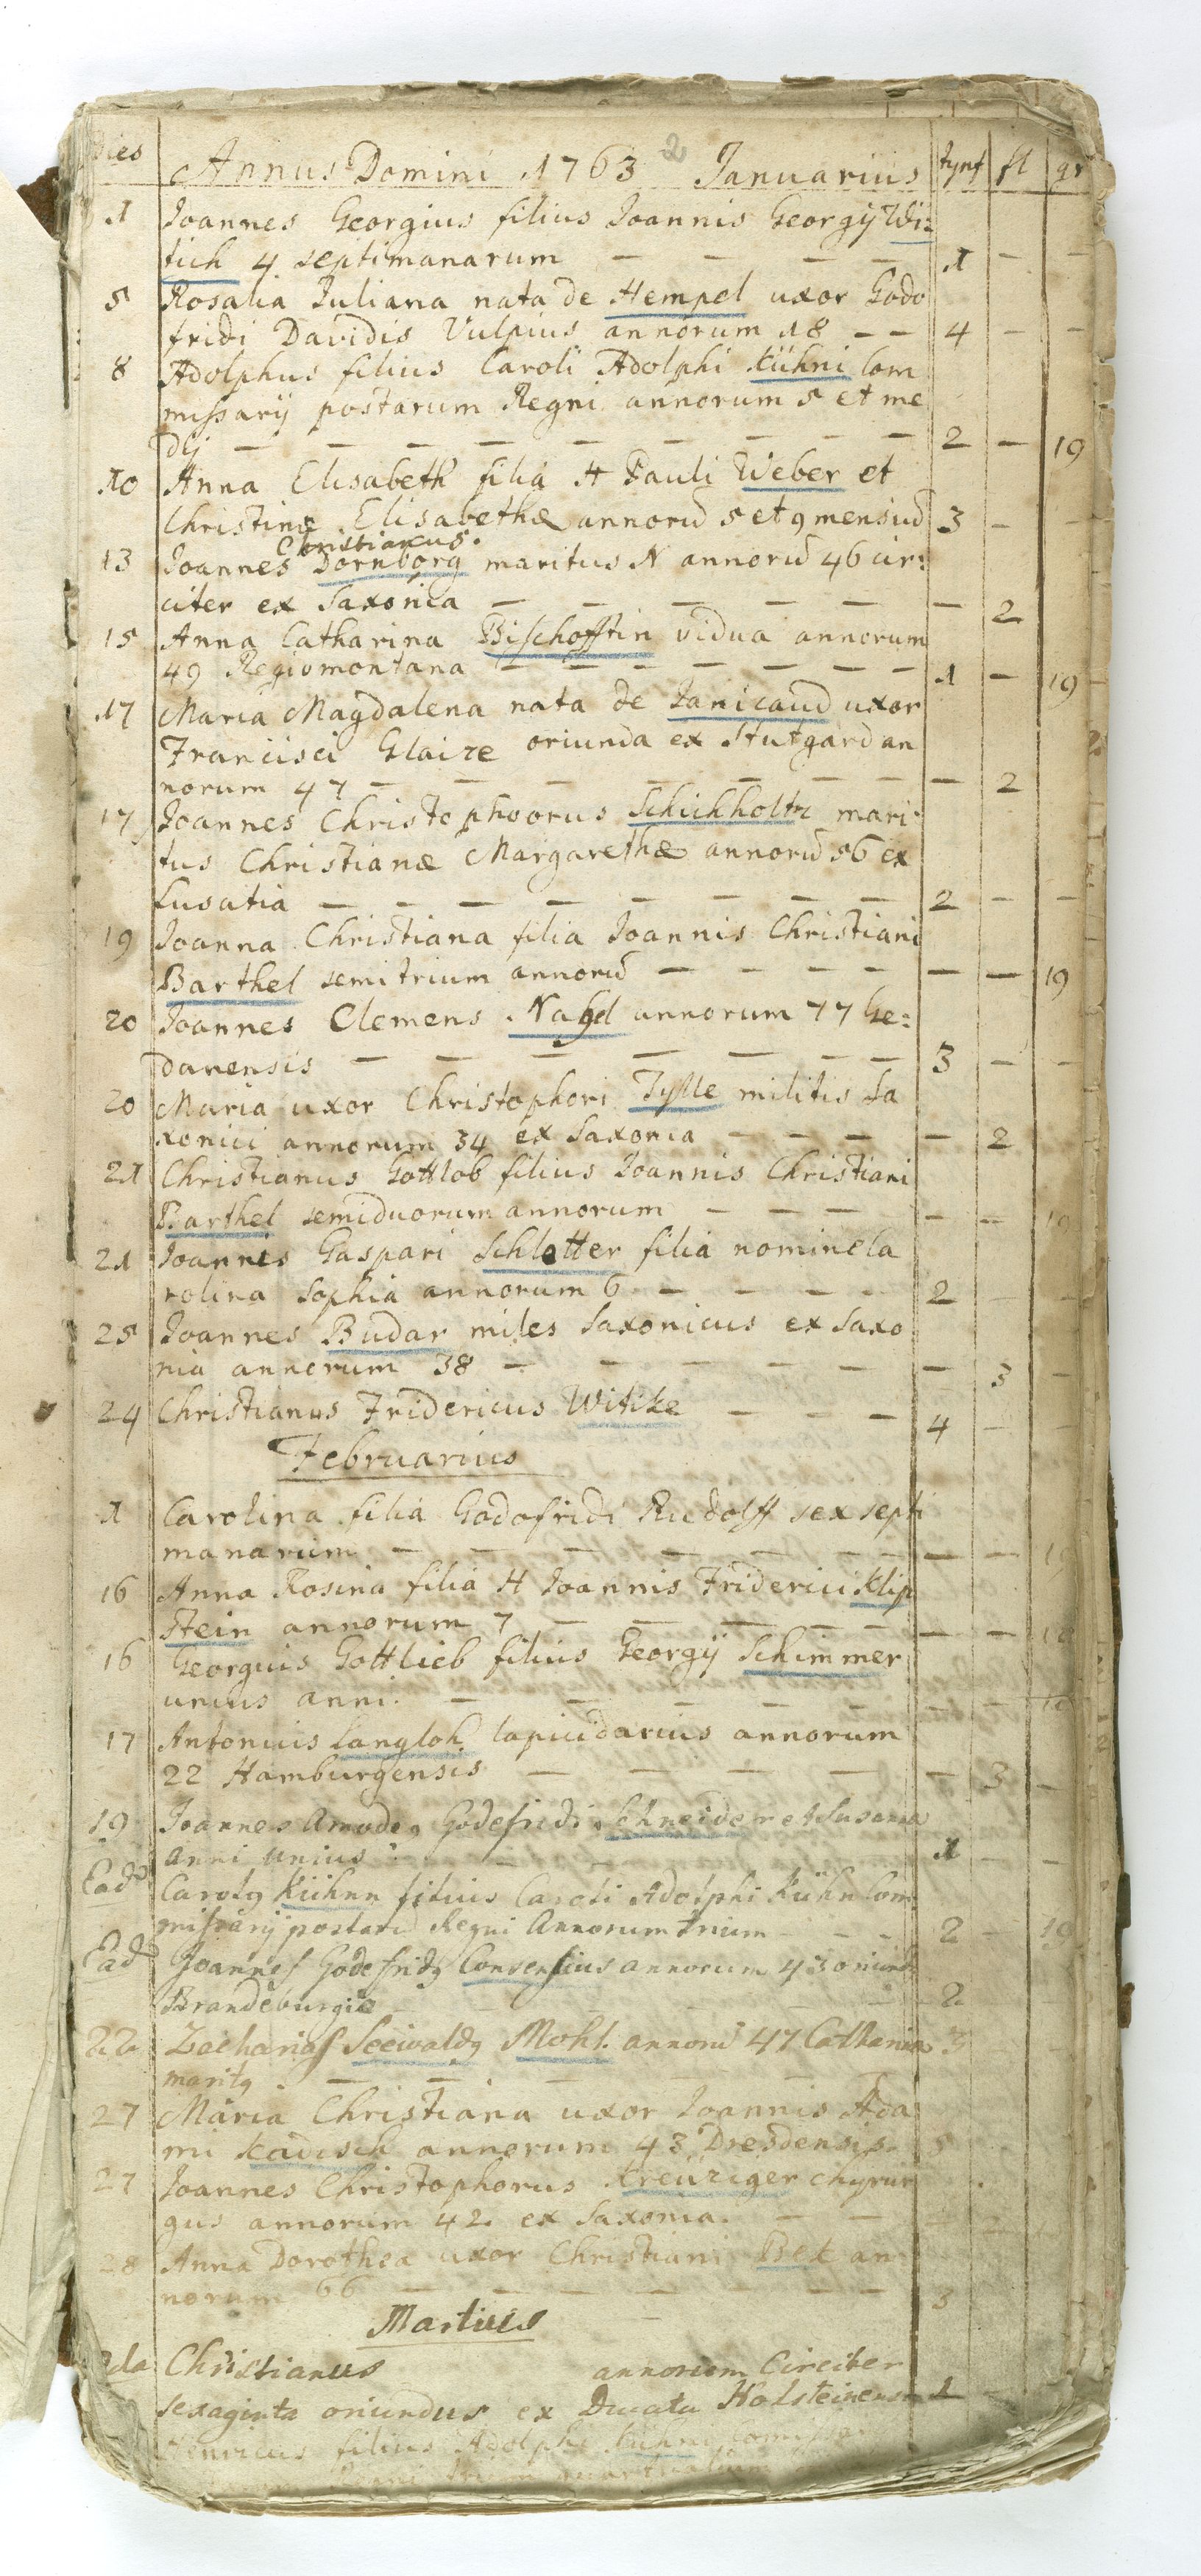 Dies Annus Domini 1763 2 Januarius tynf fl gr
1 Joannes Georgius filius Joannis Georgij Wi=
tich 4 septimanarum — — — — 1 — —
5 Rosalia Juliana nata de Hempel uxor Godo
fridi Davidis Vulpius annorum 18 — — 4 — —
8 Adolphus filius Caroli Adolphi Kühni Com
missarij postarum Regni annorum 5 et me
dij — — — — — — — — 2 — 19
10 Anna Elisabeth filia H Pauli Weber et
Christinæ Elisabethæ annorũ 5 et 9 mensiũ 3 —
Christianus
13 Joannes Dornborg maritus N annorũ 46 cir:
citer ex Saxonia — — — — — — 2
15 Anna Catharina Bischofftin vidua annorum
49 Regiomontana — — — — — — 1 — 19
17 Maria Magdalena nata de Janicaud uxor
Francisci Glaize oriunda ex Stutgard an
norum 47 — — — — — — — 2
17 Joannes Christophoorus Schichholtz mari=
tus Christianæ Margarethæ annorũ 56 ex
Lusatia — — — — — — — 2 — —
19 Joanna Christiana filia Joannis Christiani
Barthel semitrium annorũ — — — — — — 19
20 Joannes Clemens annorum 77 Ge=
danensis — — — — — — 3 — —
20 Maria uxor Christophori Tylle militis Sa
xonici annorum 34 ex Saxonia — — — — 2
21 Christianus Gottlob filius Joannis Christiani
Barthel semiduorum annorum — — — — — 19
21 Joannis Gaspari Schlotter filia nomine Ca
rolina Sophia annorum 6 — — — — 2 — —
25 Joannes Budar miles Saxonicus ex Saxo
nia annorum 38 — — — — — — 3 —
24 Christianus Fridericus Witike — — — 4 — —
Februarius
1 Carolina filia Godofridi Rudolff sex septi
manarum — — — — — — — — 19
16 Anna Rosina filia H Joannis Friderici Klip
stein annorum 7 — — — — — — 18
16 Georgius Gottlieb filius Georgij Schimmer
unius anni. — — — — — — — 18
17 Antonius Langloh lapicidarius annorum
22 Hamburgensis — — — — — — 3 —
19 Joannes Godefridi Schneider et Susanna
anni unius — — — — 1 — —
Eadͦ Carolꝯ Kühnn filius Caroli Adolphi Kühn Com
missarij postarũ Regni Annorum trium — — — 2 — 19
Eadͦ Joannes Godefridꝯ Consensius annorum 43 oriund
Brandeburgia — — — 2
22 Zacharias Seewaldꝯ Mohl. annorũ 47 3
maritꝯ — — — — — —
27 Maria Christiana uxor Joannis Ada
mi Kadisch annorum 43 Dresdensis 5
27 Joannes Christophorus Kreüziger chyrur
gus annorum 42. ex Saxonia. — — — 2
28 Anna Dorothea uxor Christiani Bek an
norum 66 — — — — — — 3
Martius
2da Christianus annorum Circiter
sexaginta oriundus ex Ducatu Holsteinensi 1 —
Henricus filius Adolphi Kühni